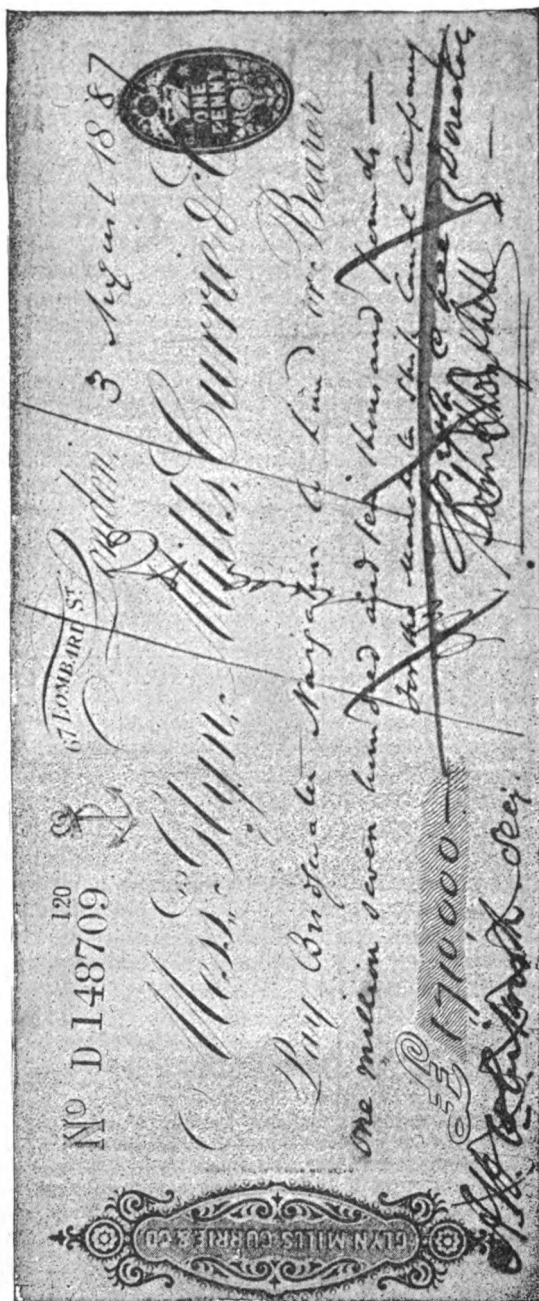 GLYN MILLS CURRIE & CO
120
No D 148709
67 LOMBARD ST
London, 3 August 1887
ONE PENNY
Messrs Glyn, Mills, Currie & Co
Pay Bridgwater Navigation Co Limd or Bearer
one million seven hundred and ten thousand pounds —
For the Manchester Ship Canal Company
£ 1,710,000 —
Directors
Secy.